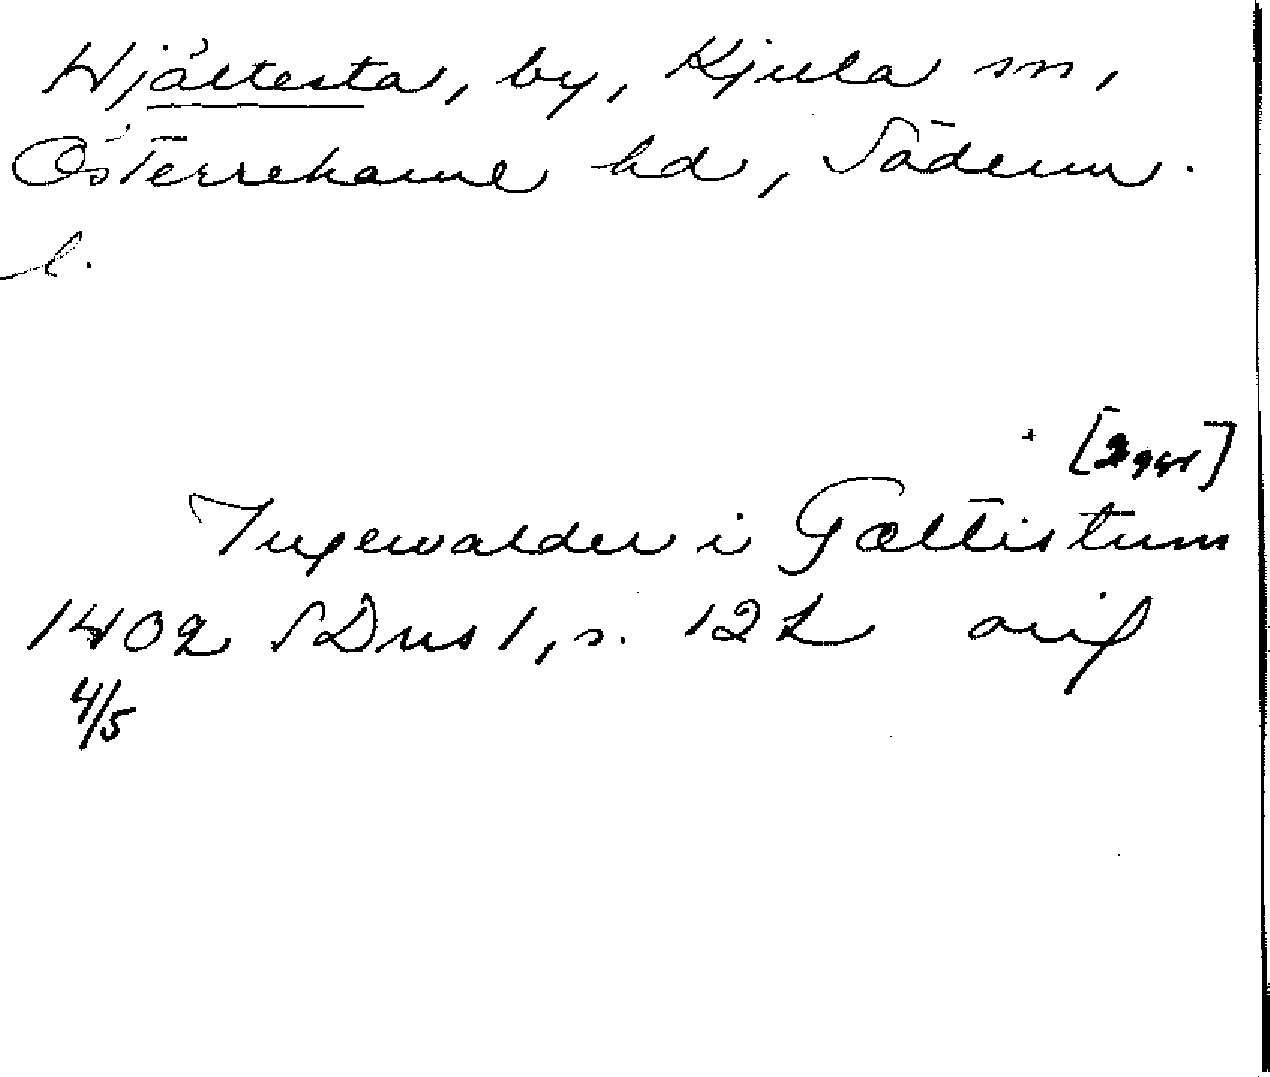 Hjältesta, by, Kjula sn,
Österrekarne hd, Söderm.
l.
[2 ggr]
Ingewalder i Gœltistum
1402 SDns 1, s. 122 avif
4/5